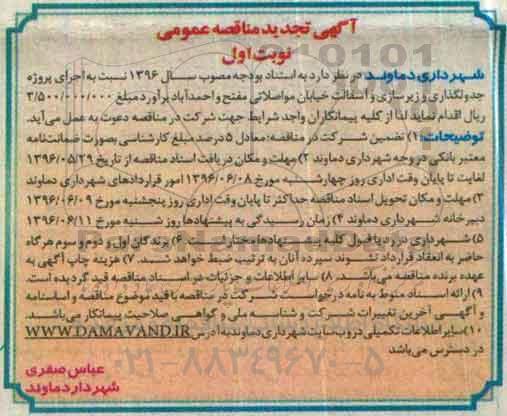 آگهی تجدید مناقصه عمومی
نوبت اول
شهرداری دماوند در نظر دارد به استناد بودجه مصوب سال ۱۳۹۶ نسبت به اجرای پروژه
جدولگذاری و زیرسازی و آسفالت خیابان مواصلاتی مفتح و احمدآباد برآورد مبلغ ۳/۵۰۰/۰۰۰/۰۰۰
ریال اقدام نماید لذا از کلیه پیمانکاران واجد شرایط جهت شرکت در مناقصه دعوت به عمل می‌آید.
توضیحات: ۱) تضمین شرکت در مناقصه: معادل ۵ درصد مبلغ کارشناسی بصورت ضمانت‌نامه
معتبر بانکی در وجه شهرداری دماوند ۲) مهلت و مکان دریافت اسناد مناقصه از تاریخ ۱۳۹۶/۰۵/۲۹
لغایت تا پایان وقت اداری روز چهارشنبه مورخ ۱۳۹۶/۰۶/۰۸ امور قراردادهای شهرداری دماوند
۳) مهلت و مکان تحویل اسناد مناقصه حداکثر تا پایان وقت اداری روز پنجشنبه مورخ ۱۳۹۶/۰۶/۰۹
دبیرخانه شهرداری دماوند ۴) زمان رسیدگی به پیشنهادها روز شنبه مورخ ۱۳۹۶/۰۶/۱۱
۵) شهرداری در رد یا قبول کلیه پیشنهادها مختار است. ۶) برندگان اول و دوم و سوم هرگاه
حاضر به انعقاد قرارداد نشوند سپرده آنان به ترتیب ضبط خواهد شد. ۷) هزینه چاپ آگهی به
عهده برنده مناقصه می‌باشد. ۸) سایر اطلاعات و جزئیات در اسناد مناقصه قید گردیده است.
۹) ارائه اسناد منوط به نامه درخواست شرکت در مناقصه با قید موضوع مناقصه و اساسنامه
و آگهی آخرین تغییرات شرکت و شناسه ملی و گواهی صلاحیت پیمانکار می‌باشد.
۱۰) سایر اطلاعات تکمیلی در وب‌سایت شهرداری دماوند به آدرس WWW.DAMAVAND.IR
در دسترس می‌باشد
۰۲۱-۸۸۳۴۹۶۷۰-۵
عباس صفری
شهردار دماوند